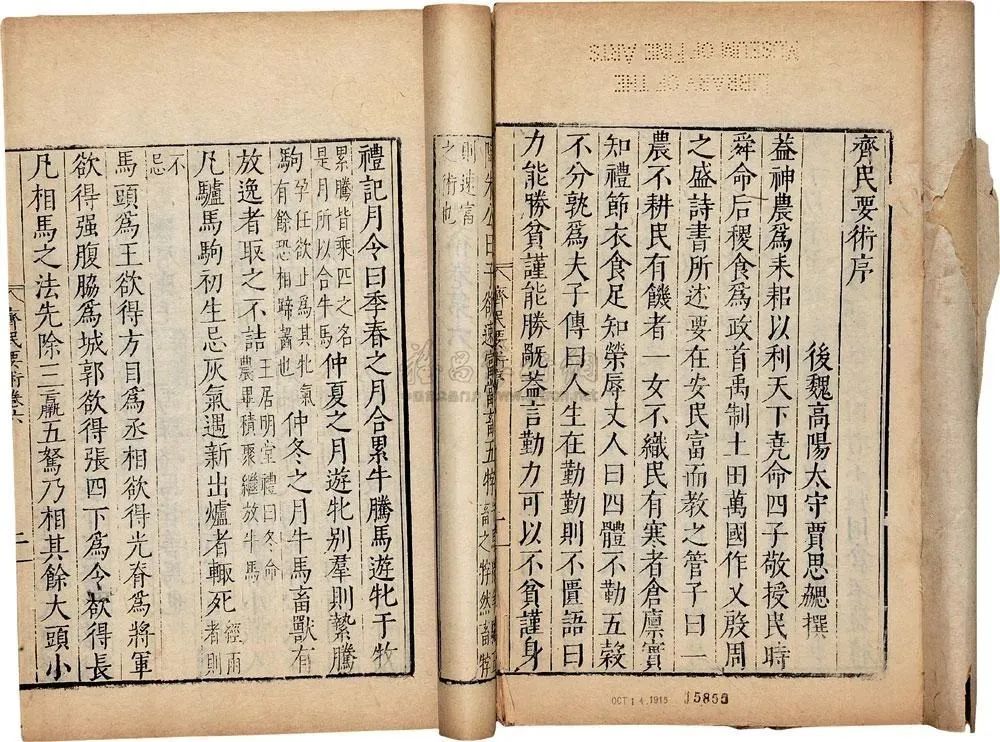 齊民要術序
後魏高陽太守賈思勰撰
葢神農爲耒耜以利天下堯命四子敬授民時
舜命后稷食爲政首禹制土田萬國作乂殷周
之盛詩書所述要在安民富而教之管子曰一
農不耕民有饑者一女不織民有寒者倉廩實
知禮節衣食足知榮辱丈人曰四體不勤五穀
不分孰爲夫子傳曰人生在勤勤則不匱語曰
力能勝貧謹能勝禍葢言勤力可以不貧謹身
齊民要術序
則速富
之術也
禮記月令曰季春之月合累牛騰馬遊牝于牧
累騰皆乘匹之名
是月所以合牛馬
仲夏之月遊牝别羣則縶騰
駒
孕任欲止爲其牝氣
有餘恐相蹄齧也
仲冬之月牛馬畜獸有
放逸者取之不詰
王居明堂禮曰冬命
農畢積聚繼放牛馬
凡驢馬駒初生忌灰氣遇新出爐者輙死
經雨
者則
不
忌
馬頭爲王欲得方目爲丞相欲得光脊爲將軍
欲得强腹脇爲城郭欲得張四下爲令欲得長
凡相馬之法先除三羸五駑乃相其餘大頭小
齊民要術卷六
LIBRARY OF THE
MUSEUM OF FINE ARTS
OCT 14 1915
15855